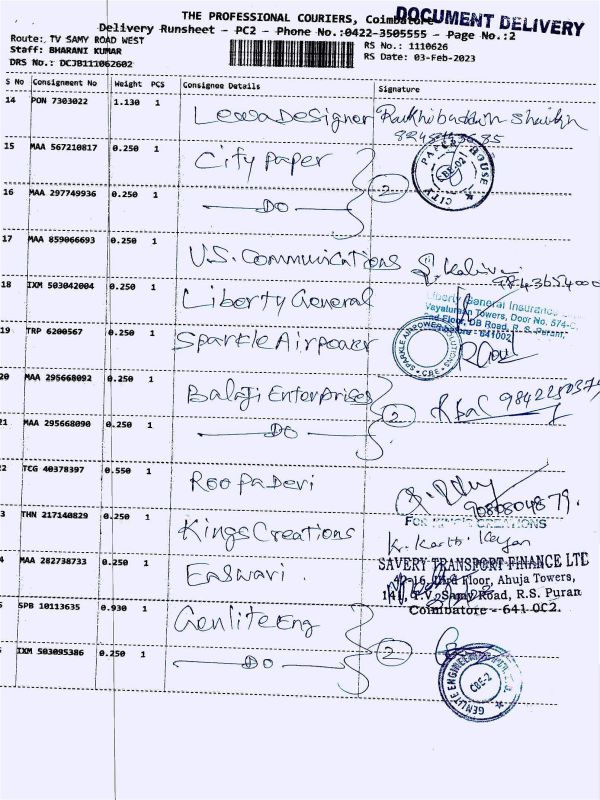 THE PROFESSIONAL COURIERS, Coimbatore
DOCUMENT DELIVERY
Delivery Runsheet - PC2 - Phone No.:0422-3505555 - Page No.:2
Route: TV SAMY ROAD WEST
RS No.: 1110626
Staff: BHARANI KUMAR
RS Date: 03-Feb-2023
DRS No.: DCJB111062602
S No Consignment No Weight PCS Consignee Details Signature
14 PON 7303022 1.130 1 Lewa Designer
15 MAA 567210817 0.250 1 City paper 2
CITY PAPER HOUSE CBE-01
16 MAA 297749936 0.250 1 DO
17 MAA 859066693 0.250 1 U.S. Communications
18 IXM 503042004 0.250 1 Liberty General
Liberty General Insurance
Vayaluraan Towers, Door No. 574-C,
2nd Floor, DB Road, R. S. Puram,
641002
19 TRP 6200567 0.250 1 Sparkle Airpower
SPARKLE AIRPOWER SOLUTIONS CBE
20 MAA 295668092 0.250 1 Balaji Enterprises 2
21 MAA 295668090 0.250 1 DO
2 TCG 40378397 0.550 1 Roopa Devi
3 THN 217140829 0.250 1 Kings Creations
FOR KING'S CREATIONS
K. Karthi Keyan
4 MAA 282738733 0.250 1 Easwari.
SAVERY TRANSPORT FINANCE LTD
42-16, Floor, Ahuja Towers,
141, T.V. Samy Road, R.S. Puran
Coimbatore - 641 002.
5 SPB 10113635 0.930 1 Genlite Eng 2
IXM 503095386 0.250 1 DO
GENLITE ENGINEERING CBE-2